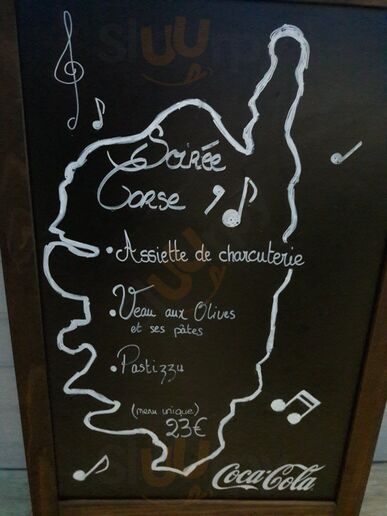 Soirée
Corse
• Assiette de charcuterie
• Veau aux Olives
et ses pâtes
• Pastizzu
(menu unique)
23€
Coca-Cola